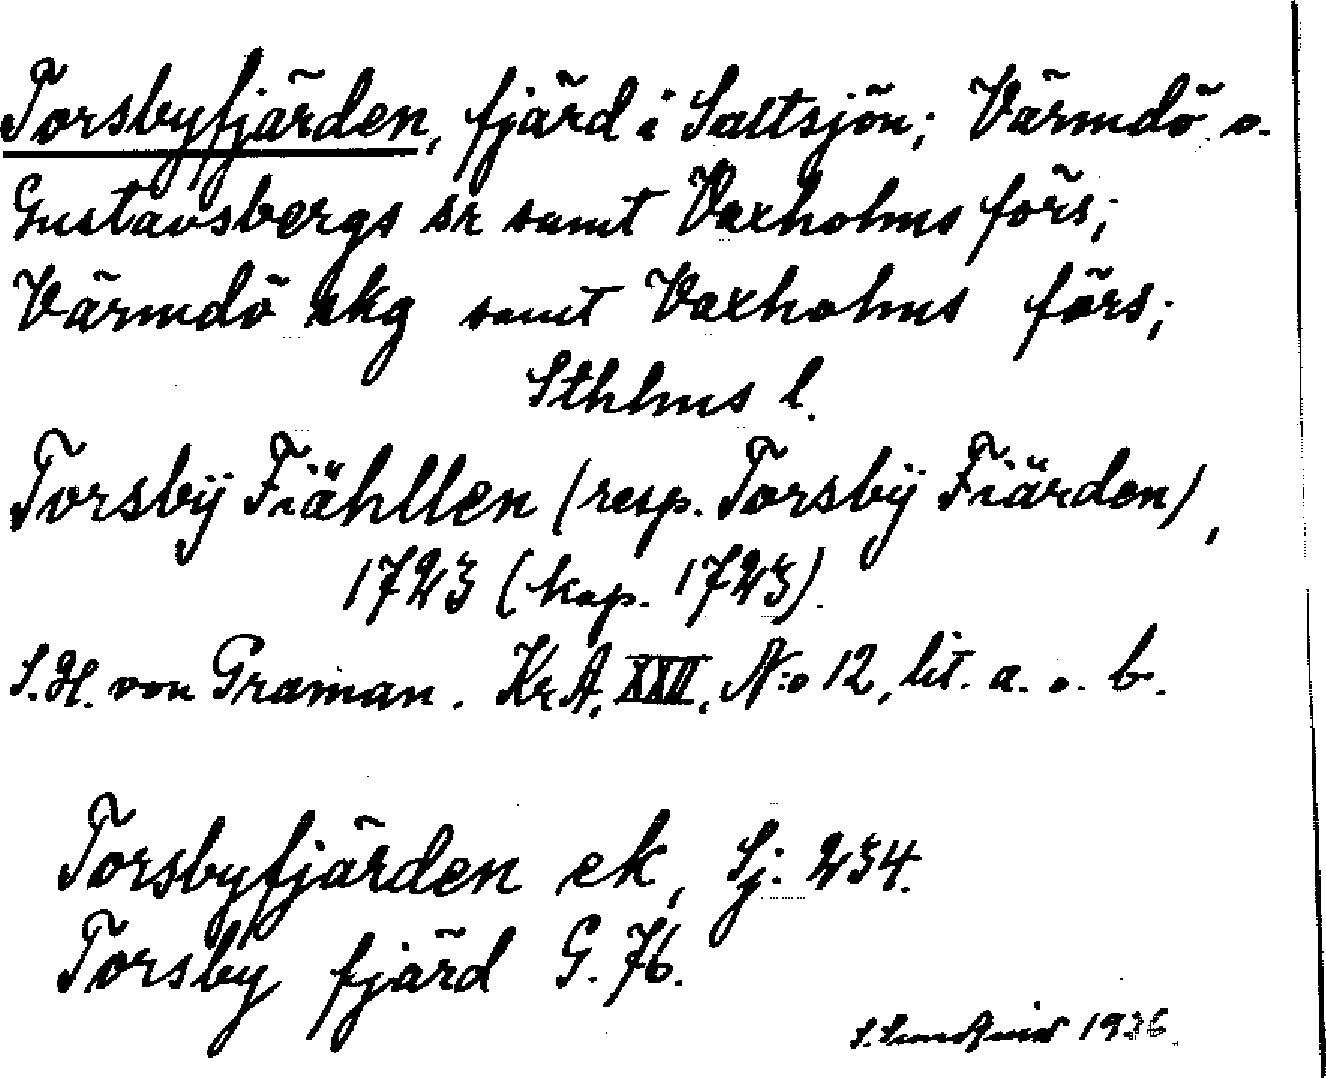 Torsbyfjärden, fjärd i Saltsjön; Värmdö o.
Gustavsbergs sr samt Vaxholms förs;
Värmdö skg samt Vaxholms förs;
Sthlms l.
Torsbÿ Fiähllen (resp. Torsbÿ Fiärden),
1723 (kop. 1723).
S.H. von Graman. KrA, XXII, N:o 12, lit. a. o. b.
Torsbyfjärden ek, Sj: 234.
Torsby fjärd G. 76.
1936.